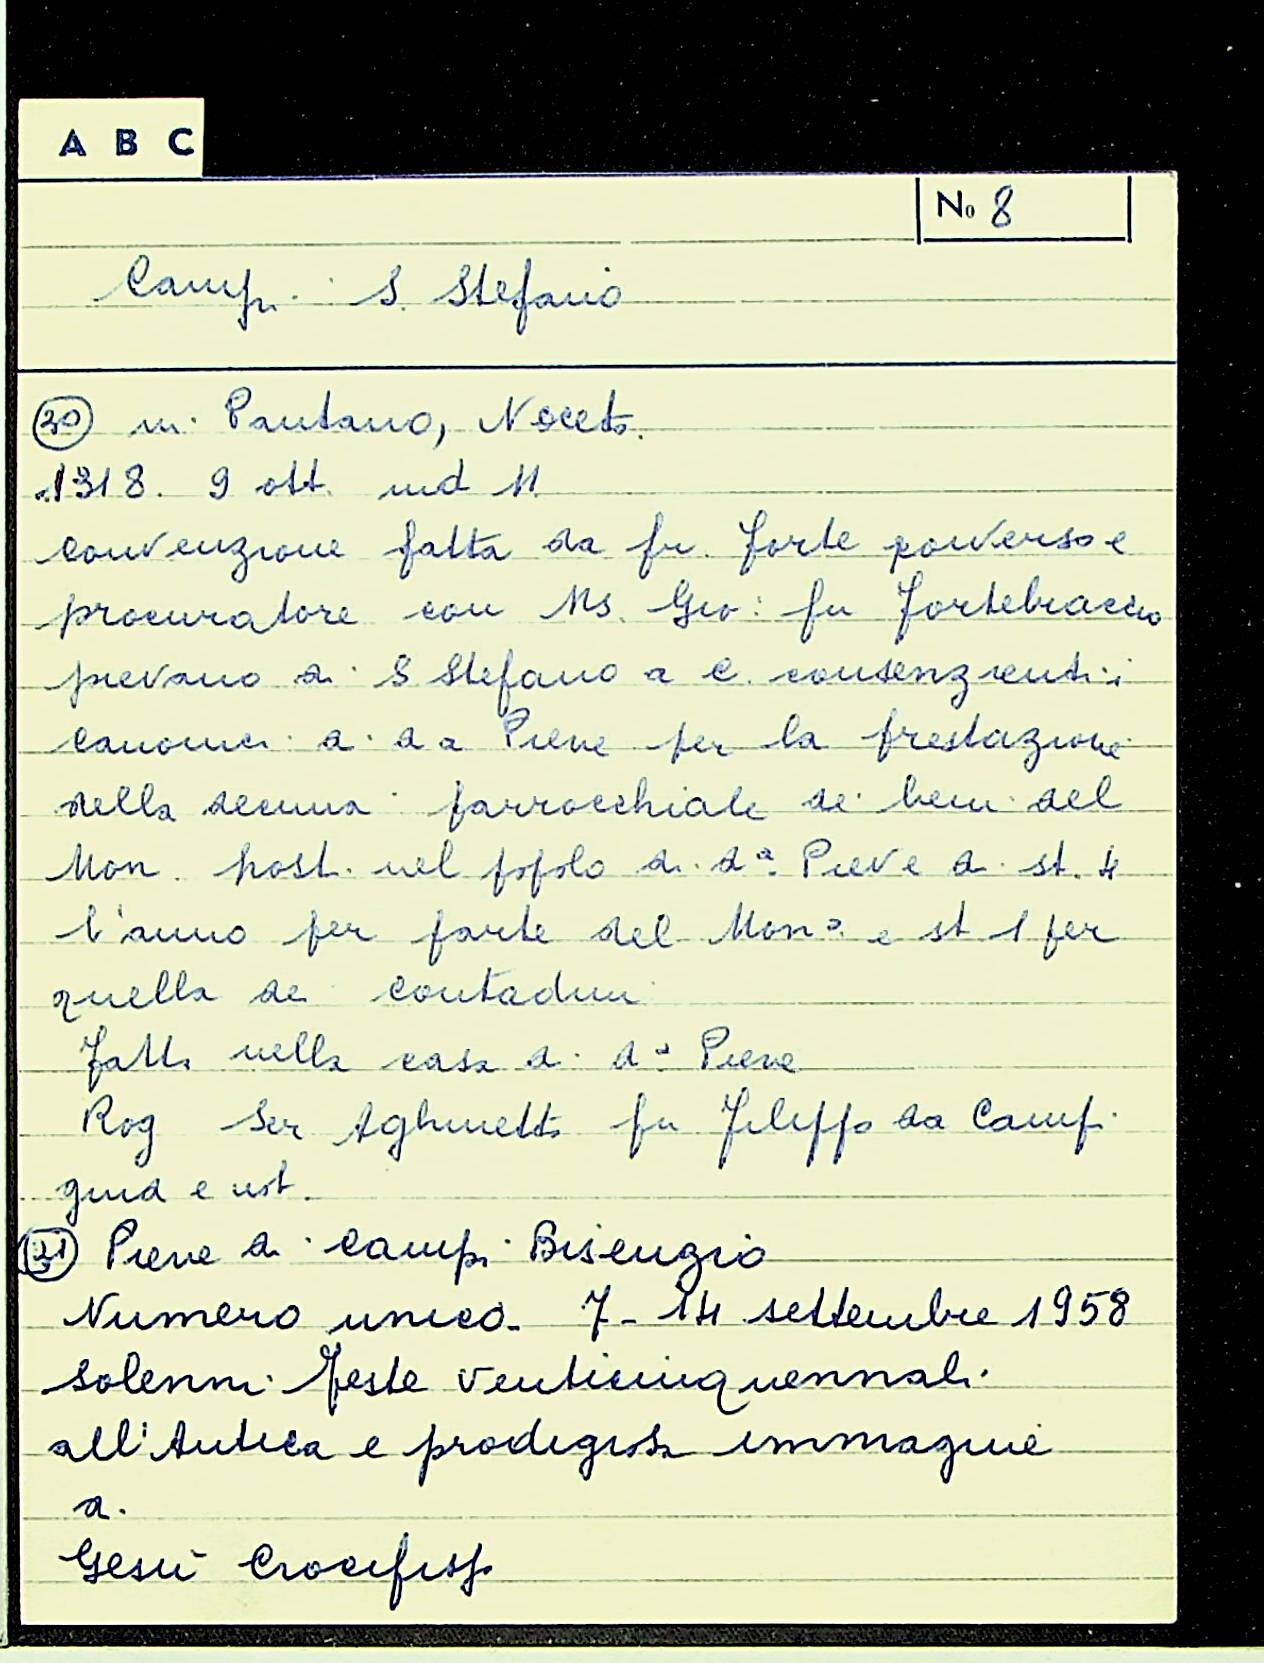 A B C
No 8
Campi S. Stefano
30 in Pantano, Noceto.
1318. 9 ott. ind II
convenzione fatta da fr. forte converso e
procuratore con Ms. Gio: fu Fortebraccio
pievano di S Stefano a C. consenzienti i
canonici di da Pieve per la prestazione
della decima parrocchiale de beni del
Mon. post. nel popolo di da. Pieve di st. 4
l'anno per parte del Mono. e st 1 per
quella de contadini
Fatta nella casa di da Pieve
Rog Ser Aghinetto fu Filippo da Campi
giud e not.
31 Pieve di Campi Bisenzio
Numero unico - 7 - 14 settembre 1958
solenni Feste venticinquennali
all'Antica e prodigiosa immagine
di
Gesù Crocifisso